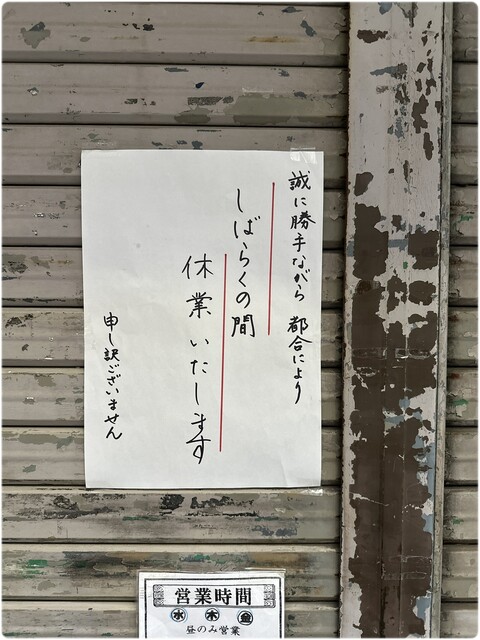 誠に勝手ながら 都合により
しばらくの間
休業いたします
申し訳ございません
営業時間
水 木 金
昼のみ営業